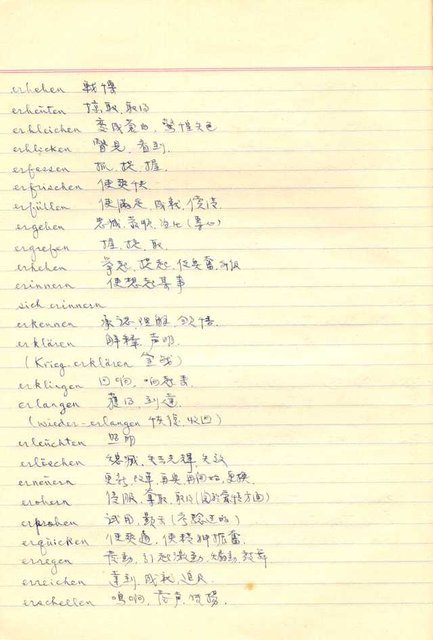 erheben 戰慄
erheuten 掠取, 取得
erbleichen 變成蒼白, 驚惶失色
erblicken 瞥見, 看到,
erfassen 抓, 捉, 握
erfrischen 使爽快
erfüllen 使滿足, 成就, 
ergeben 忠誠
ergrefen 握, 捉, 取
erheben 举起, 提起, 
erinnern 使想起某事
sich erinnern
erkennen 承認, 理解, 領悟
erklären 解釋, 声明,
(Krieg erklären 宣战)
erklingen 回响, 响起来
erlangen 獲得, 到達
(wieder-erlangen 恢復 收回)
erleuchten 照明
erlöschen 熄滅, 失去光輝, 失效
erneuern 更新, 改革, 更換
erobern 征服, 奪取, 取得
erproben 試用, 
erquicken 使爽適, 使精神振奮
erregen 發動, 引起激動, 煽動, 鼓舞
erreichen 達到, 成就, 追及
erschellen 鳴响, 發声,